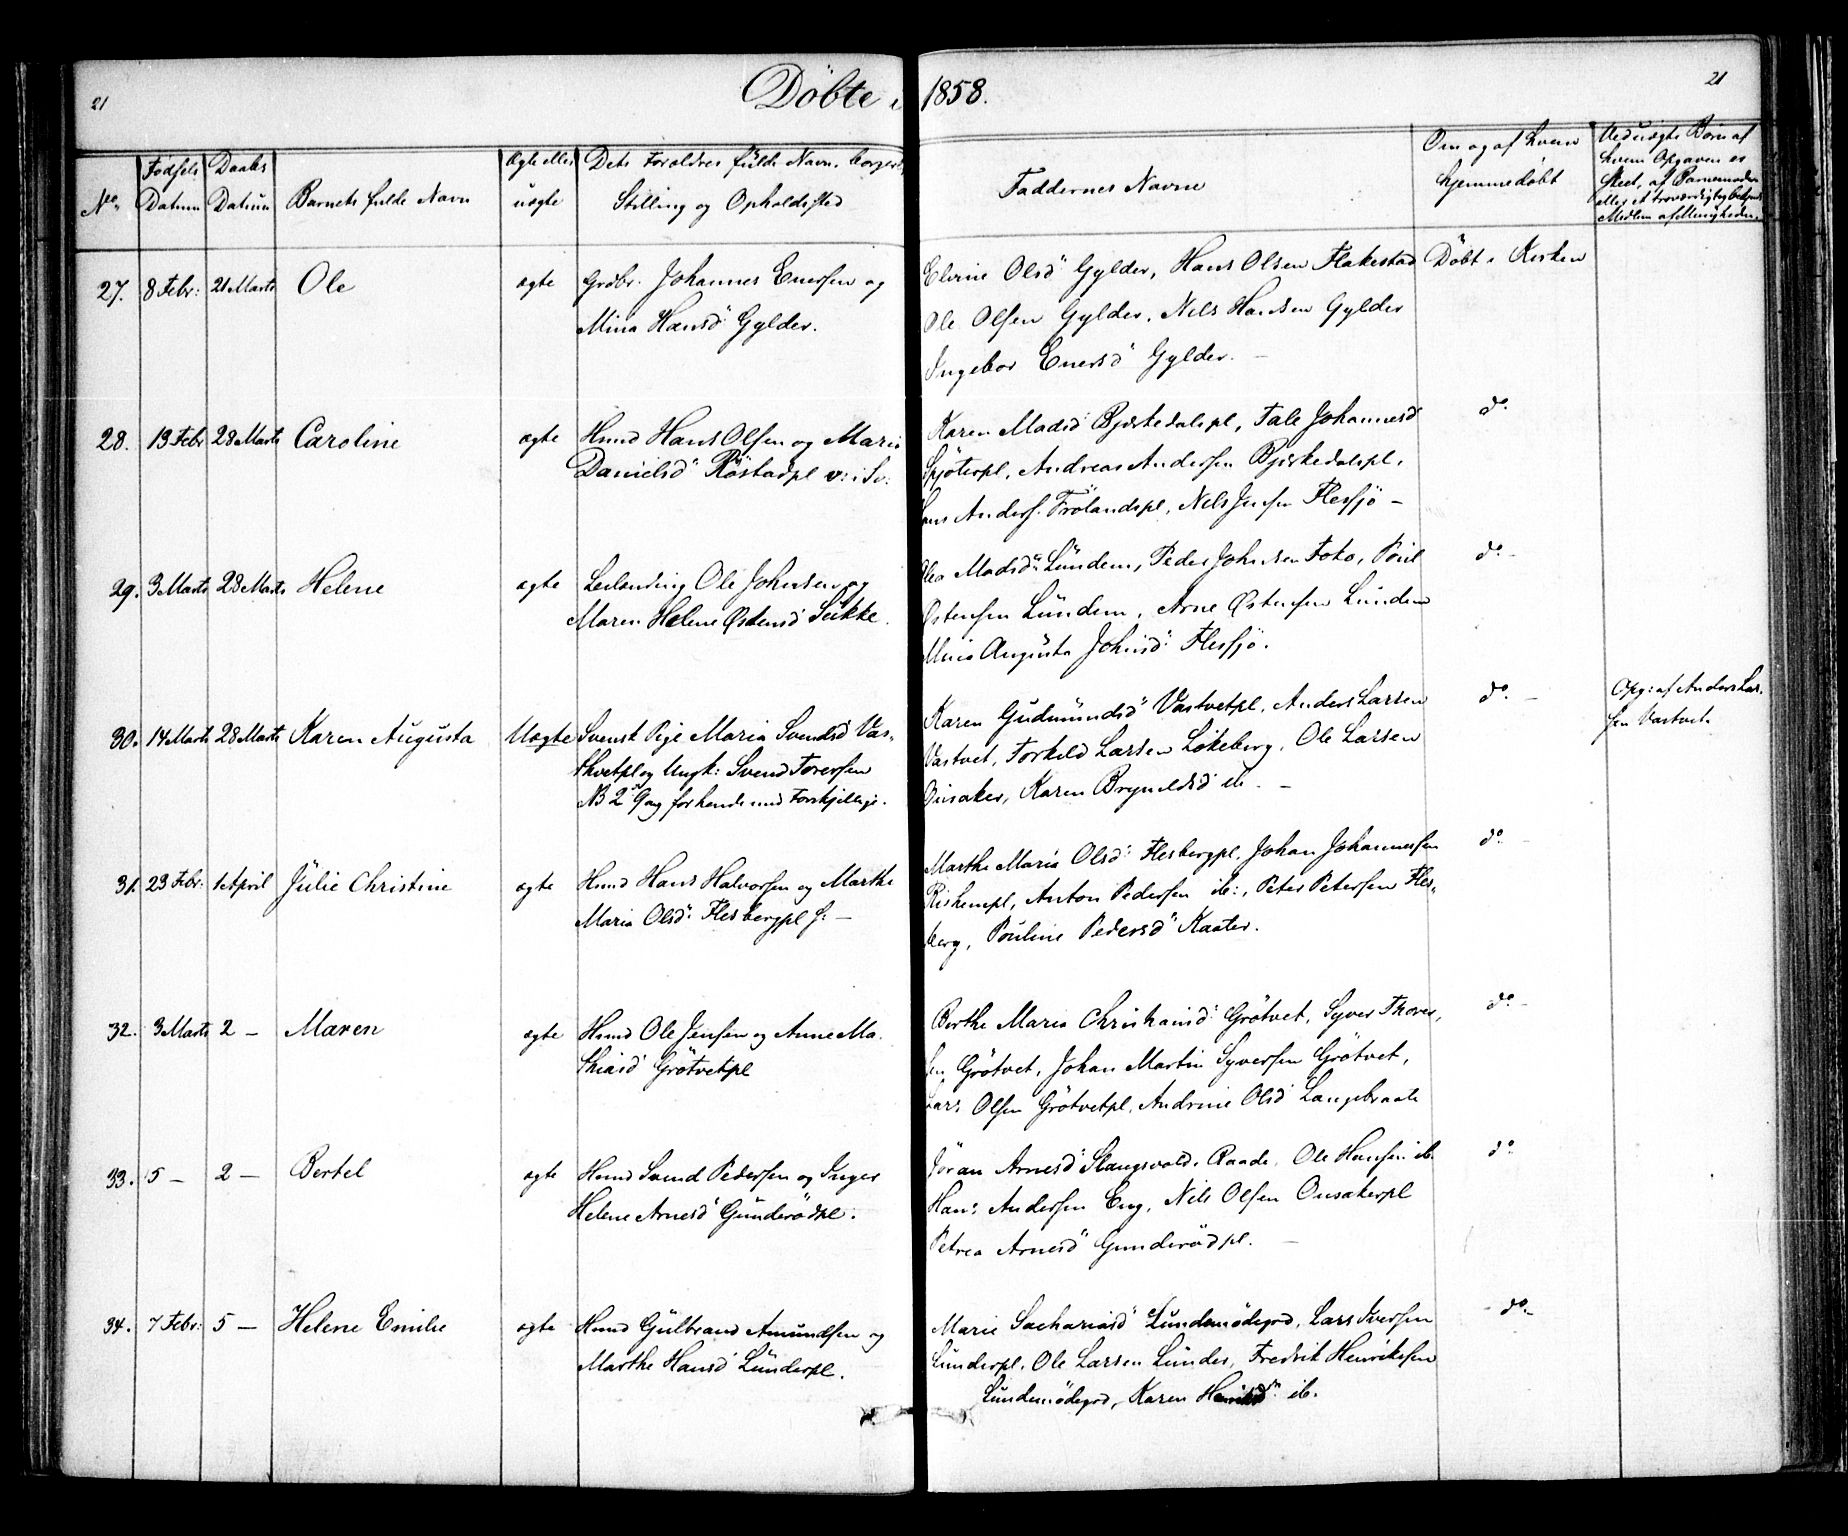 21
Döbte i 1858.
21
No.
Fødsels Datum
Daabs Datum
Barnets fulde Navn
Ægte eller uægte
Dets Forældres fulde Navn, borgerl.
Stilling og Opholdssted
Faddernes Navne
Om og af hvem
hjemmedöbt
Ved uægte Börn af
hvem Opgaven er
skeet, af Barnemoder
eller et troværdigt bekjendt
Medlem af Menigheden.
27. 8 Febr: 21 Marts Ole ægte Grdbr. Johannes Enersen og
Mina Hansd: Gylder.
Elvine Olsd: Gylder, Hans Olsen Flakestad
Ole Olsen Gylder, Nils Hansen Gylder
Ingebor Enersd: Gylder. —
Döbt i Kirken
28. 13 Febr 28 Marts Caroline ægte Huusmd Hans Olsen og Maria
Danielsd: Röstadpl v: i Sv:
Karen Madsd: Bjerkedalspl, Tale Johannesd
Spjöterpl, Andreas Andersen Bjerkedalspl,
Anders. Frölandspl, Nils Jensen Flesjö —
do.
29. 3 Marts 28 Marts Helene ægte Leilending Ole Johnsen og
Maren Helene Østensd: Sukke.
Olea Madsd: Lundem, Peder Johnsen Foko, Poul
Østensen Lundem, Arne Østensen Lundem
Mina Augusta Johnsd: Flesjö.
do. —
30. 14 Marts 28 Marts Karen Augusta Uægte Svensk Pige Maria Svendsd Vas-
thvetpl og Ungk: Svend Toresen
NB 2den Gang for hende med Forskjellige.
Karen Gudmundsd: Vastvetpl, Anders Larsen
Vastvet, Torkild Larsen Lökeberg, Ole Larsen
Ousaker, Karen Brynildsd ib. —
do. —
Opg: af Anders Lar-
sen Vastvet.
31. 23 Febr: 1 April Julie Christine ægte Huusmd Hans Halvorsen og Marthe
Maria Olsd: Flesbergpl f: —
Marthe Maria Olsd: Flesbergpl, Johan Johannesen
Riskenpl, Anton Pedersen ib:, Peter Petersen Fles-
berg, Pouline Pedersd: Kaater.
do. —
32. 3 Marts 2 — Maren ægte Huusmd Ole Jensen og Anne Ma-
thiasd: Grötvetpl
Berthe Maria Christiansd: Grötvet, Syver Thorer-
sen Grötvet, Johan Martin Syversen Grötvet,
Lars Olsen Grötvetpl, Andrine Olsd: Langebraate
do. —
33. 5 — 2 — Bertel ægte Huusmd Svend Pedersen og Inger
Helene Arnesd: Gunderödpl.
Jöran Arnesd: Slangsvold, Raade, Ole Hansen ib.
Hans Andersen Eng, Nils Olsen Ousakerpl
Petrea Arnesd: Gunderödpl. —
do.
34. 7 Febr: 5 — Helene Emilie ægte Huusmd Gulbrand Amundsen og
Marthe Hansd: Lunderpl.
Marie Sachariasd: Lundemödegrd, Lars Iversen
Lunderpl, Ole Larsen Lunder, Fredrik Henriksen
Lundemödegrd, Karen Henriksd: ib.
do. —